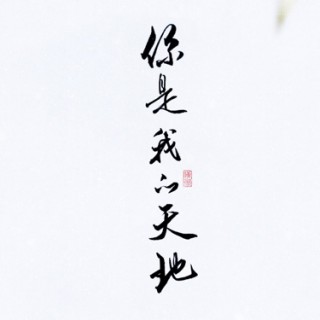 你是我的天地